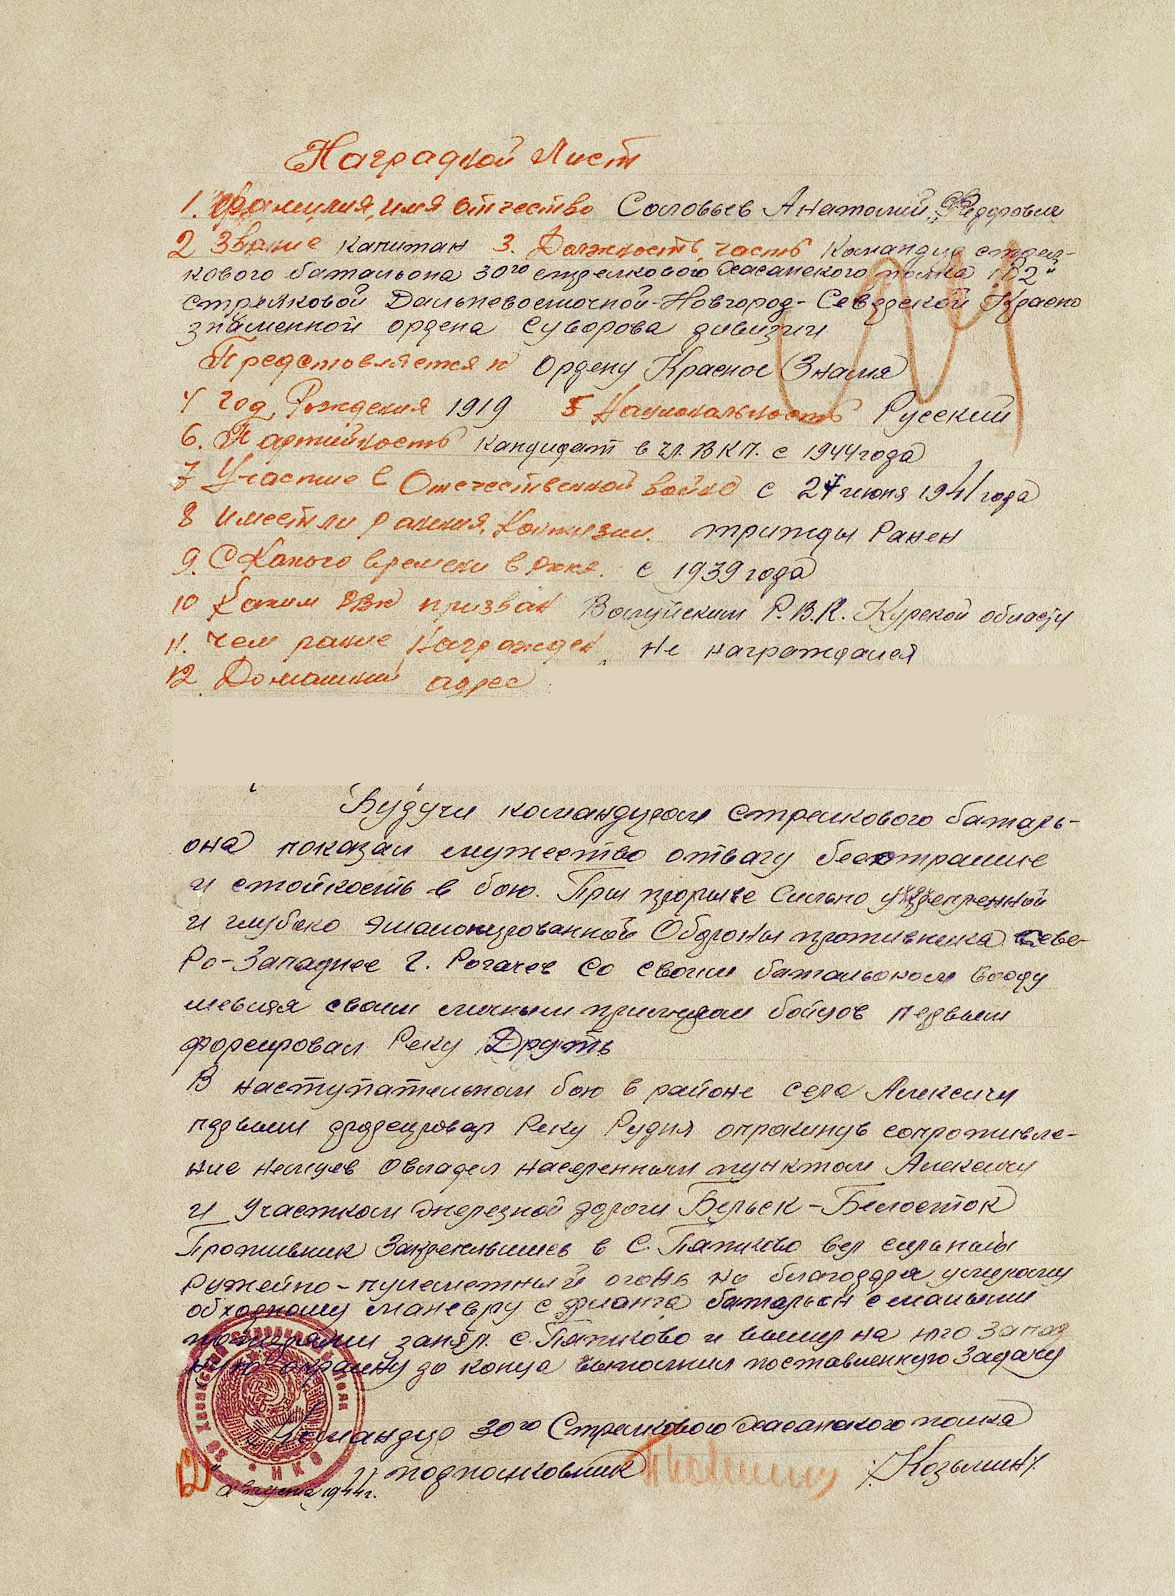 Наградной Лист
1. Фамилия, имя отчество Соловьев Анатолий Федорович
2 Звание капитан 3. Должность, часть Командир стрел-
кового батальона 30го стрелкового Хасанского полка 102й
стрелковой Дальневосточной-Новгород-Северской Красно
знаменной ордена Суворова дивизии
Представляется к Ордену Красное Знамя
4 Год Рождения 1919 5 Национальность Русский
6. Партийность кандидат в чл. ВКП. с 1944 года
7 Участие в Отечественной войне с 27 июня 1941 года
8 имеет ли ранения, контузии. трижды Ранен
9. С какого времени в РККА. с 1939 года
10 Каким РВК призван Валуйским Р.В.К. Курской области
11. Чем ранее награжден не награждался
12. Домашний адрес
Будучи командиром стрелкового баталь-
она показал мужество отвагу бесстрашие
и стойкость в бою. При прорыве сильно укрепленной
и глубоко эшалонированной Обороны противника севе-
Ро-Западнее г. Рогачев со своим батальоном вооду
шевляя своим личным примером бойцов первым
форсировал Реку Друть
В наступательном бою в районе села Алексичи
первым форсировал Реку Рудня опрокинув сопротивле-
ние немцев овладел населенным пунктом Алексичи
и Участком железной дороги Бельск-Белосток
Противник Закрепившись в С. Патково вел сильный
Ружейно-пулеметный огонь но благодаря умелому
обходному маневру с фланга батальон с малыми
потерями занял с. Патково и вышел на его Запад
ную окраину до конца выполнил поставленную Задачу
Командир 30го Стрелкового Хасанского полка
подполковник /Козьмин/
12 " августа 1944г.